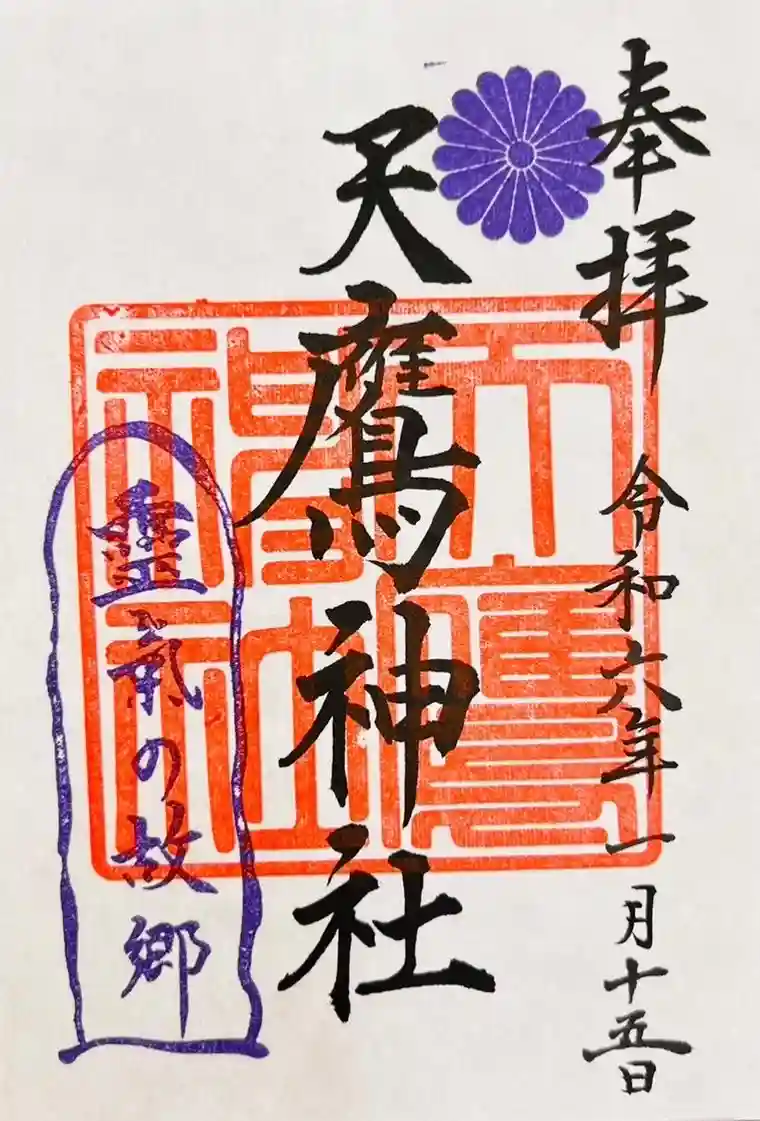 奉拝
令和六年一月十五日
天鷹神社
天鷹
神社
霊氣の故郷